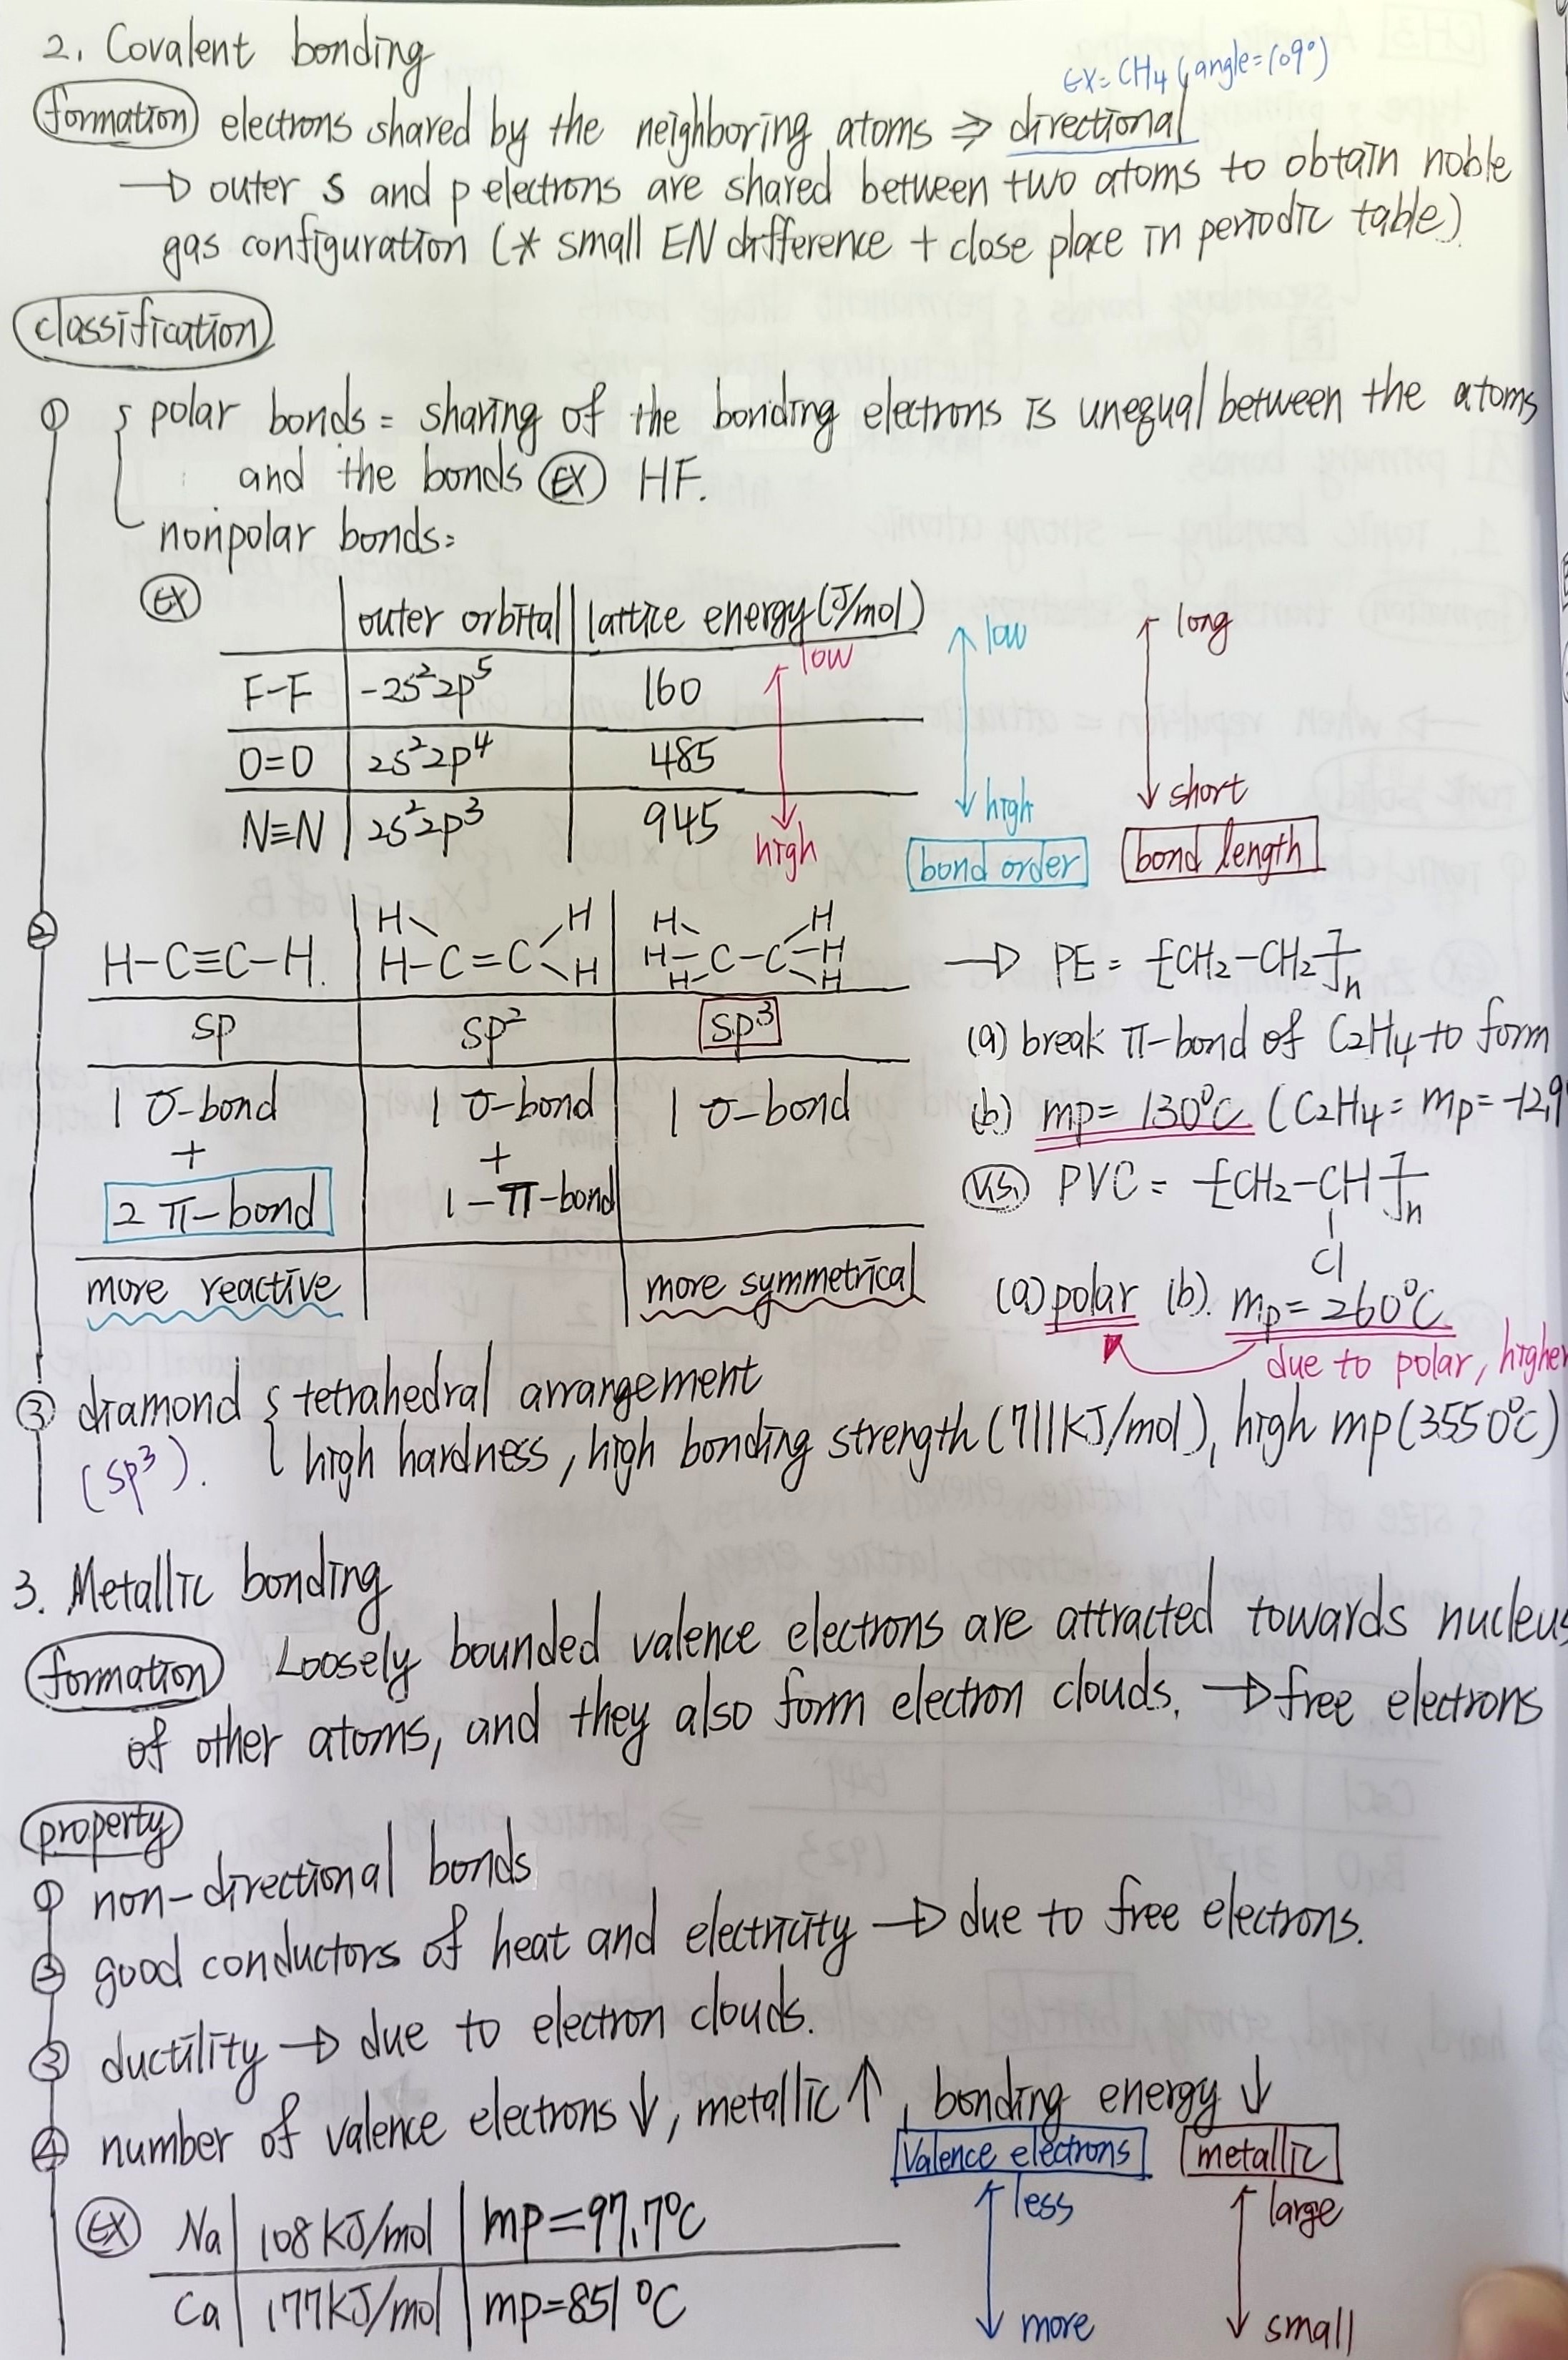 2. Covalent bonding
EX= CH4 (angle=109°)
formation electrons shared by the neighboring atoms ⇒ directional
→ outer s and p electrons are shared between two atoms to obtain noble
gas configuration (* small EN difference + close place in periodic table)
classification
① { polar bonds = sharing of the bonding electrons is unequal between the atoms
and the bonds EX HF.
nonpolar bonds=
EX | outer orbital | lattice energy (J/mol)
F-F | -2s²2p⁵ | 160
O=O | 2s²2p⁴ | 485
N≡N | 2s²2p³ | 945
low
high
low
high
bond order
long
short
bond length
② H-C≡C-H. | H H-C=C H H | H H H C-C H H H
sp | sp² | sp³
1 σ-bond | 1 σ-bond | 1 σ-bond
+ | +
2 π-bond | 1-π-bond
more reactive | | more symmetrical
→ PE = [CH2-CH2]n
(a) break π-bond of C2H4 to form
(b) mp= 130°C (C2H4= mp=-12,9
V.S. PVC = [CH2-CH]n
Cl
(a) polar (b). mp= 260°C
due to polar, higher
③ diamond { tetrahedral arrangement
(sp³). high hardness, high bonding strength (711KJ/mol), high mp (3550°C)
3. Metallic bonding
formation Loosely bounded valence electrons are attracted towards nucleus
of other atoms, and they also form electron clouds. → free electrons
property
① non-directional bonds
② good conductors of heat and electricity → due to free electrons.
③ ductility → due to electron clouds.
④ number of valence electrons ↓, metallic ↑, bonding energy ↓
EX Na | 108 KJ/mol | mp=97.7°C
Ca | 177KJ/mol | mp=851°C
Valence electrons
less
more
metallic
large
small